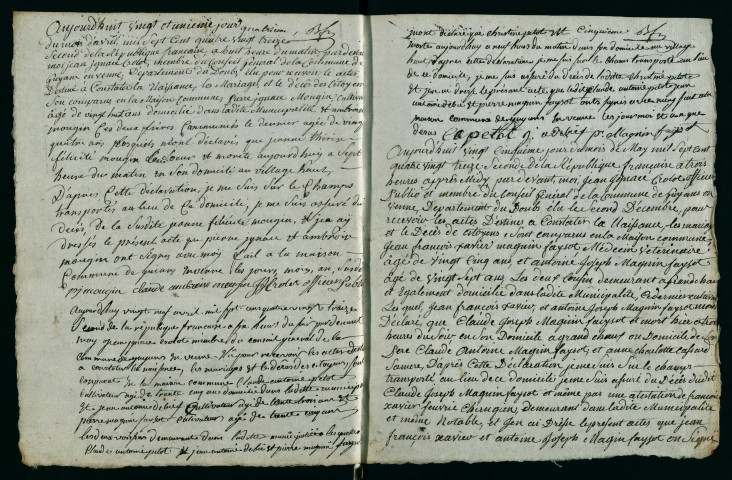 aujourd'huit vingt et unieme jour
du mois d'avril mil sept cent quatre vingt treize
second de la République française, a huit heure du matin pardevant
moi jean ignace Crolot, membre du Conseil general de la Commune de
Guyans en venne, Departement du Doubs élu pour recevoir les actes
Destiné a Constater la Naissance, les Mariage, et le décès des Citoyens
Sont comparus en la Maison Commune, pierre ignace Mougin, Cultiv
âgé de vingt huit ans domicilié dans ladite Municipalité et ambroise
mougin Ces deux frères le dernier agée de vingt
quatre ans lesquels m'ont déclarés que jeanne thérèse
félicité mougin leur Soeur et morte aujourdhuy a Sept
heure du matin en Son domicile au village haut,
D'apres Cette déclaration, je me Suis Sur le Champs
transportés au lieu de Ce domicile, je me suis assuré du
décès, de la Susdite jeanne félicité mougin, et j'en ay
dressés le présent acte que pierre ignace et ambroise
mougin ont Signés avec moi fait a la maison
Commune de guians en venne les jours, mois, an, susdit
pi mougin claude ambroise mougin Crolot officier public
aujourdhuy vingt neuf avril mil sept cent quatre vingt treize
second de la république française a heures du pardevant
moy jean ignace crolot membre du conseil general de la
commune de guyans en venne pour recevoir les actes destiné
a constater les naissance, les mariages et les décès des citoyens, sont
comparut en la maison commune claude antoine petot
cultivateur agé de trente cinq ans domicilié dans ladite municipalité
et jean antoine debief cultivateur agé de trente trois ans et
pierre magnin fayot cultivateur agé de trente cinq ans
demeurant dans ladite municipalité lesquels
claude antoine petot et jean antoine debief et pierre magnin fayot
mont déclaré que christine petot est
morte aujourdhuy a neuf heure du matin dans son domicile au village
haut dapres cette déclaration je me suis sur le champs transporté au lieu
de ce domicile, je me suis assuré du décès de ladite christine petot
et j'en ay dressé le présent acte que claude antoine petot jean
antoine debief et pierre magnin fayot ont signes avec moy fait a la
maison commune de guyans en venne les jour mois et an que
dessus C a petot j. a debief p. magnin fayot
Aujourdhuit vingt Cinquieme jour du mois de May mil Sept cent
quatre vingt treize Second de la République française a trois
heures après Midy pardevant moi, Jean Ignace Crolot officier
Public et membre du Conseil General de la Commune de Guyans en
venne Departement du Doubs élu le Second Décembre, pour
recevoir les actes Destiné a Constater la Naissance, les mariage
et le Décès de Citoyens Sont Comparus en la Maison Commune
Jean françois xavier magnin fayot Médecin Veterinaire
âgé de Vingt Cinq ans, et antoine Joseph Magnin fayot
âgé de Vingt Sept ans, Les deux Cousin demeurant a grandchaux
et également domicilié dans ladite Municipalité,
Lesquel, Jean françois xavier et antoine Joseph Magnin fayot m'ont
Déclaré, que Claude Joseph Magnin fayot et mort hier a trois
heures du Soir en Son Domicile a grand chaux ou Domicile de Son
père Claude Antoine Magnin fayot, et anne charlotte
Sa mere, D'apres Cette Déclaration je me suis Sur le champs
transporté au lieu de ce domicile, je me suis assuré du Décès dudit
Claude Joseph Magnin fayot et même par une atestation de françois
xavier feuvrie Chirugien, demeurant dans ladite Municipalité
et même Notable, et J'en ai Drésé le présent actes que jean
françois xavier et antoine Joseph Magnin fayot on Signé